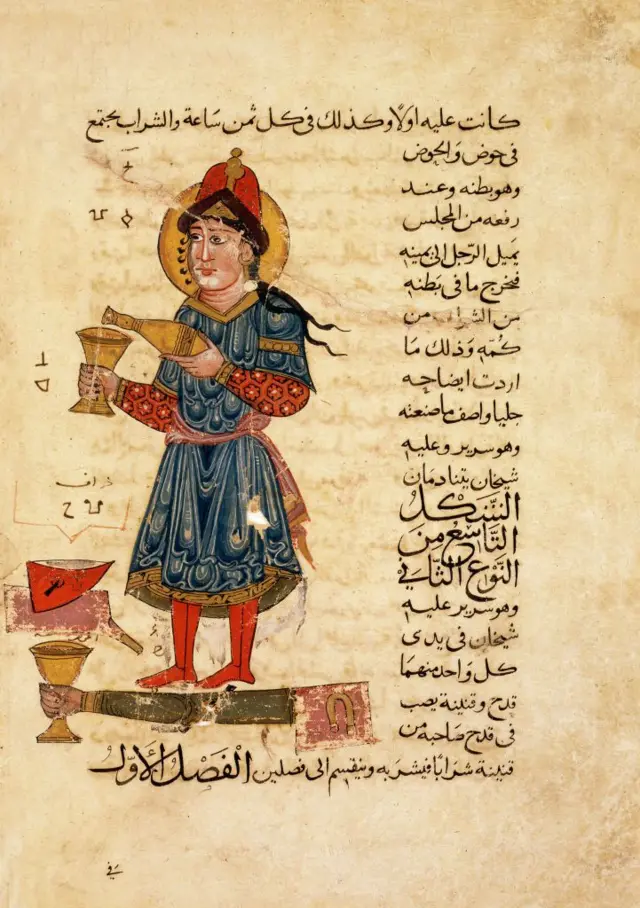 كانت عليه اولًا وكذلك فى كل ثمن ساعة والشراب يجتمع
فى حوض والحوض
وهو بطنه وعند
رفعه من المجلس
يميل الرجل الى يمينه
فيخرج ما فى بطنه
من الشراب من
كمّه وذلك ما
اردت ايضاحه
جليا واصف ما صنعته
وهو سرير وعليه
شيخان يتنادمان
الشكل
التاسع من
النوع الثّانى
وهو سرير عليه
شيخان فى يدى
كل واحد منهما
قدح وقنينة يصب
فى قدح صاحبه من
قنينة شرابًا فيشربه وينقسم الى فصلين الفصل الأوّل
فى